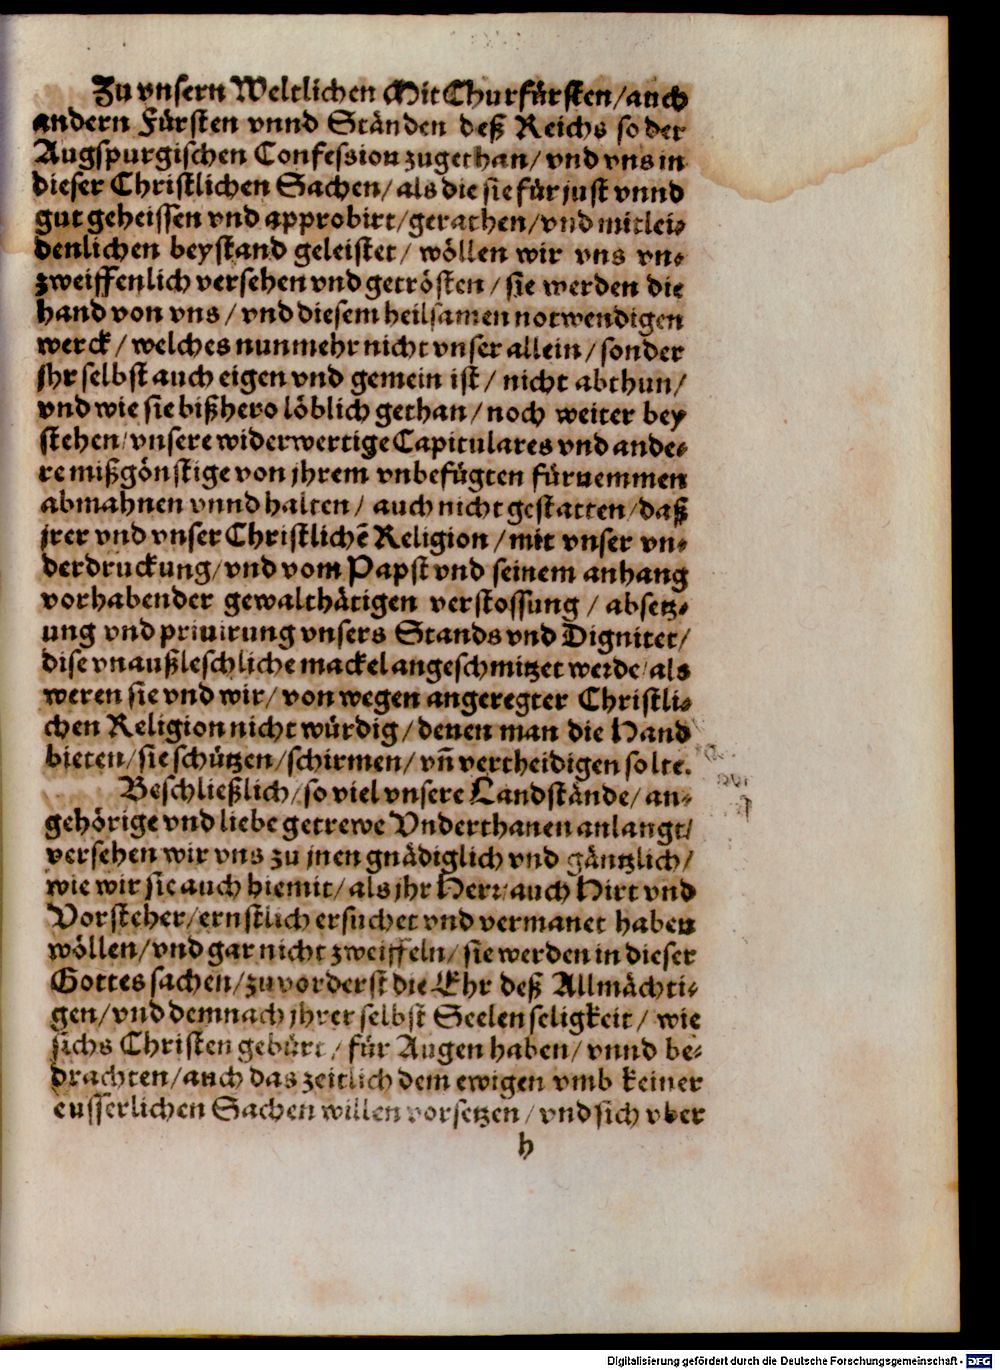 Zu vnsern Weltlichen Mit Churfürsten/auch
andern Fürsten vnnd Ständen deß Reichs so der
Augspurgischen Confession zugethan/ vnd vns in
dieser Christlichen Sachen/ als die sie für just vnnd
gut geheissen vnd approbirt/gerathen/vnd mitlei-
denlichen beystand geleistet/ wöllen wir vns vn-
zweiffenlich versehen vnd getrösten / sie werden die
hand von vns / vnd diesem heilsamen notwendigen
werck / welches nunmehr nicht vnser allein / sonder
jhr selbst auch eigen vnd gemein ist / nicht abthun/
vnd wie sie bißhero löblich gethan / noch weiter bey
stehen/ vnsere widerwertige Capitulares vnd ande-
re mißgönstige von jhrem vnbefügten fürnemmen
abmahnen vnnd halten / auch nicht gestatten/daß
jrer vnd vnser Christlichē Religion / mit vnser vn-
derdruckung/vnd vom Papst vnd seinem anhang
vorhabender gewalthätigen verstossung / absetz-
ung vnd priuirung vnsers Stands vnd Dignitet/
dise vnaußleschliche mackel angeschmitzet werde/als
weren sie vnd wir/ von wegen angeregter Christli-
chen Religion nicht würdig / denen man die Hand
bieten/sie schützen/schirmen/ vn̄ vertheidigen solte.
Beschließlich/ so viel vnsere Landstände/ an-
gehörige vnd liebe getrewe Vnderthanen anlangt/
versehen wir vns zu jnen gnädiglich vnd gäntzlich/
wie wir sie auch hiemit/ als jhr Herr/auch Hirt vnd
Vorsteher/ernstlich ersuchet vnd vermanet haben
wöllen/vnd gar nicht zweiffeln/ sie werden in dieser
Gottes sachen/zuvorderst die Ehr deß Allmächti-
gen/vnd demnach jhrer selbst Seelen seligkeit/ wie
sichs Christen gebürt / für Augen haben/ vnnd be-
drachten/auch das zeitlich dem ewigen vmb keiner
eusserlichen Sachen willen vorsetzen / vnd sich vber
h
Digitalisierung gefördert durch die Deutsche Forschungsgemeinschaft - DFG